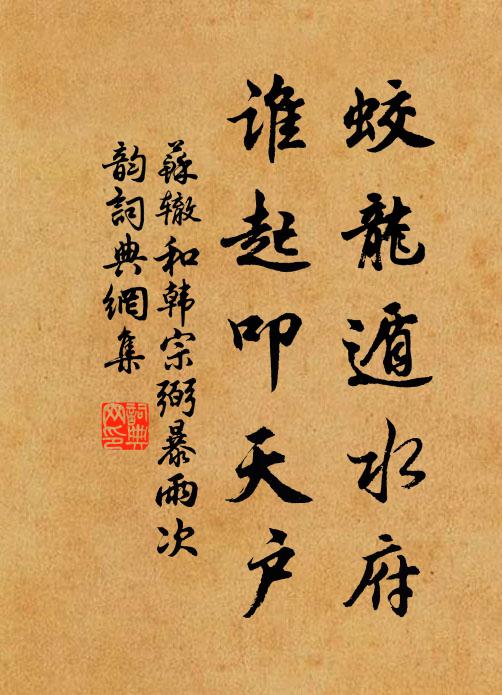 蛟龍遁水府
谁起叩天户
蘇辙和韩宗弼暴雨次
韵詞典網集
詞典網印